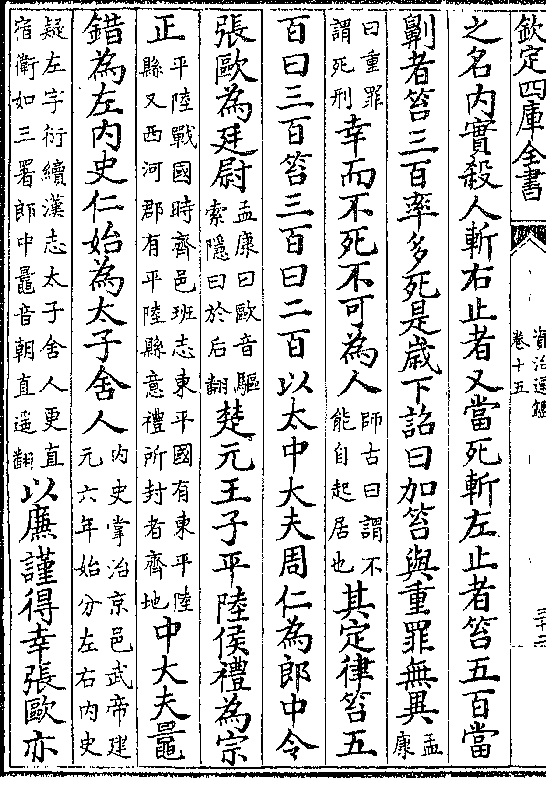 欽定四庫全書
資治通鑑
卷十五
之名内實殺人斬右止者又當死斬左止者笞五百當
劓者笞三百率多死是歲下詔曰加笞與重罪無異孟康
曰重罪謂死刑幸而不死不可為人師古曰謂不能自起居也其定律笞五
百曰三百笞三百曰二百以太中大夫周仁為郎中令
張歐為廷尉孟康曰歐音驅索隱曰於后翻楚元王子平陸侯禮為宗
正平陸戰國時齊邑班志東平國有東平陸縣又西河郡有平陸縣意禮所封者齊地中大夫鼂
錯為左内史仁始為太子舍人内史掌治京邑武帝建元六年始分左右内史
疑左字衍續漢志太子舍人更直宿衛如三署郎中鼂音朝直遥翻以廉謹得幸張歐亦